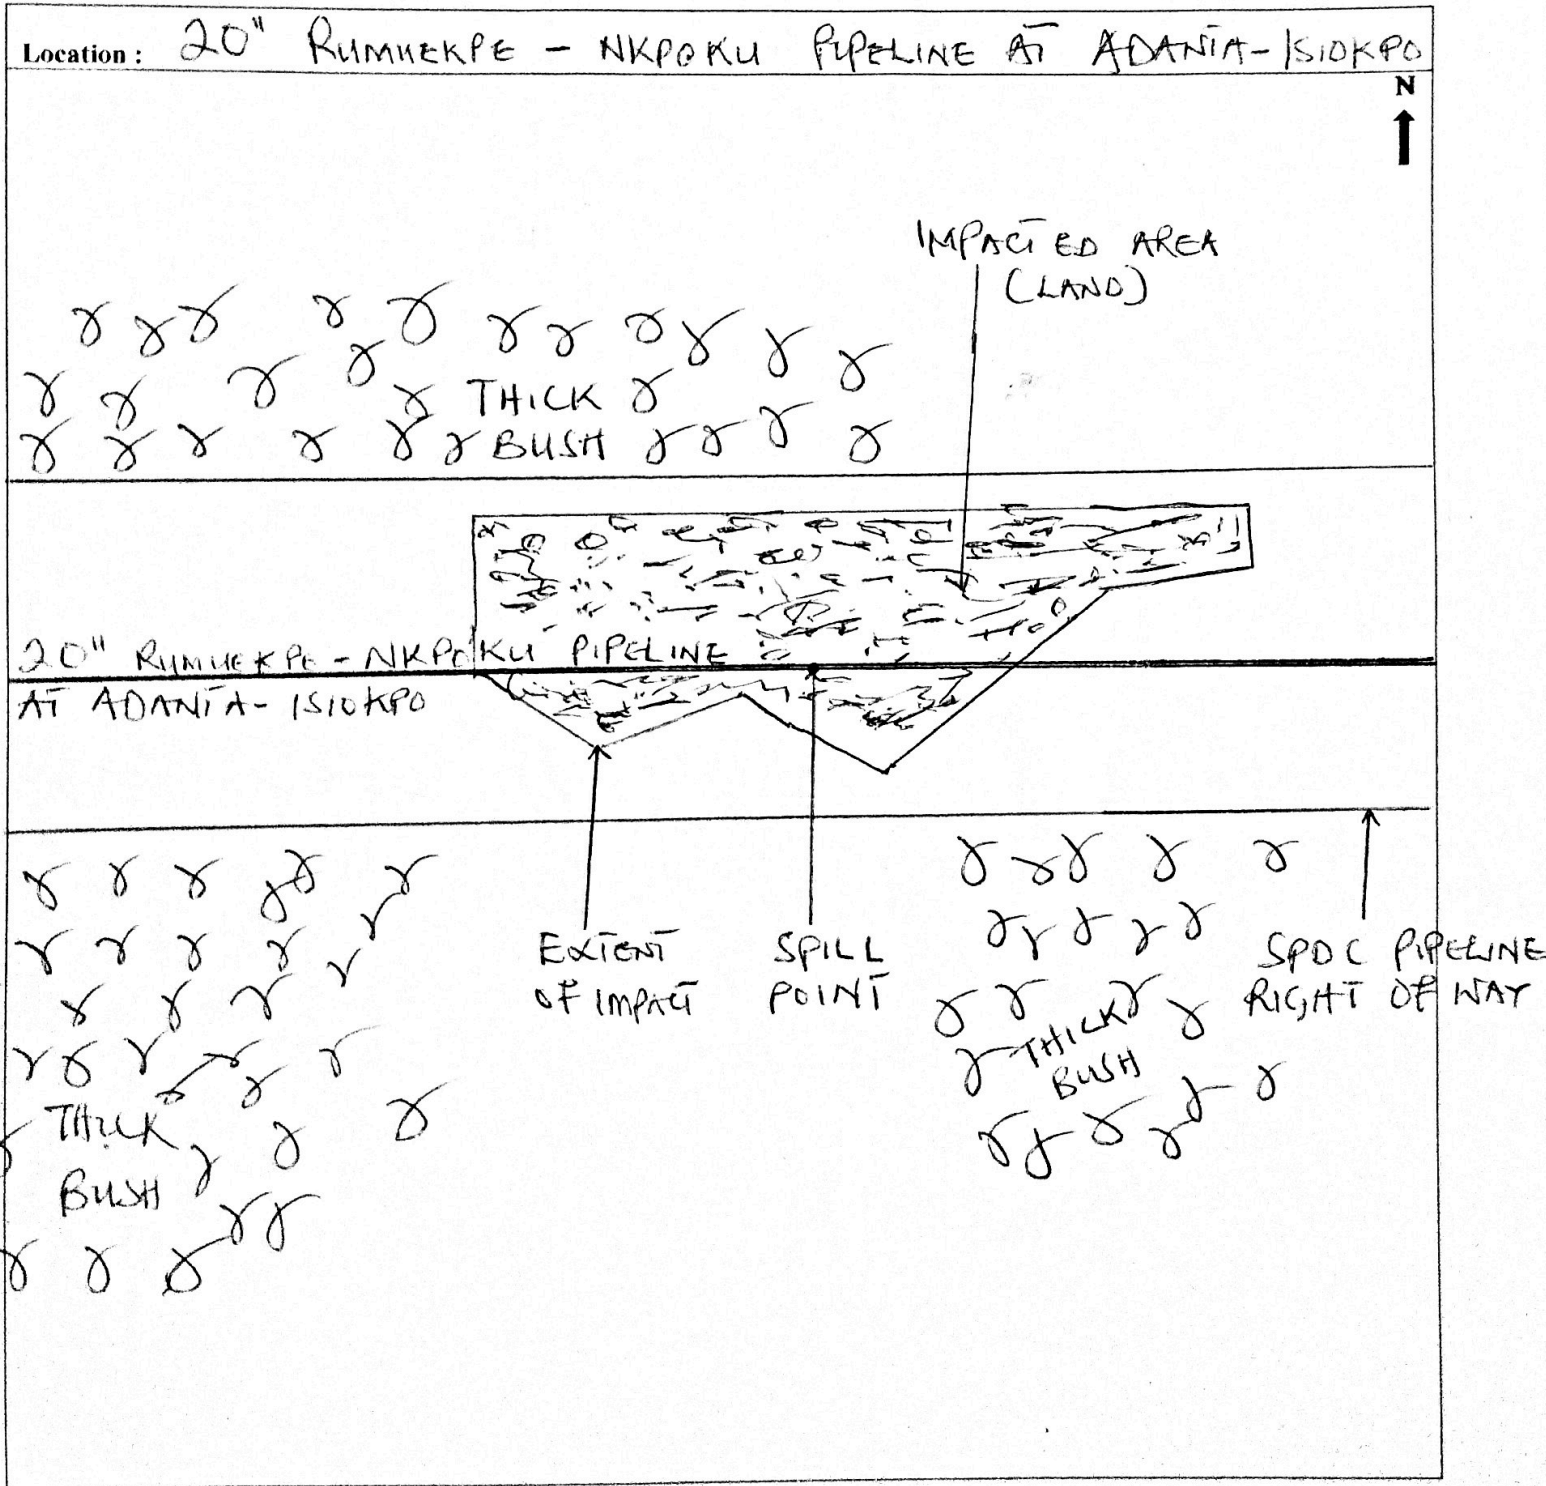 Location : 20" RUMUEKPE - NKPOKU PIPELINE AT ADANTA-ISIOKPO
N
IMPACTED AREA
(LAND)
THICK
BUSH
20" RUMUEKPE - NKPOKU PIPELINE
AT ADANTA- ISIOKPO
EXTENT
OF IMPACT
SPILL
POINT
SPDC PIPELINE
RIGHT OF WAY
THICK
BUSH
THICK
BUSH